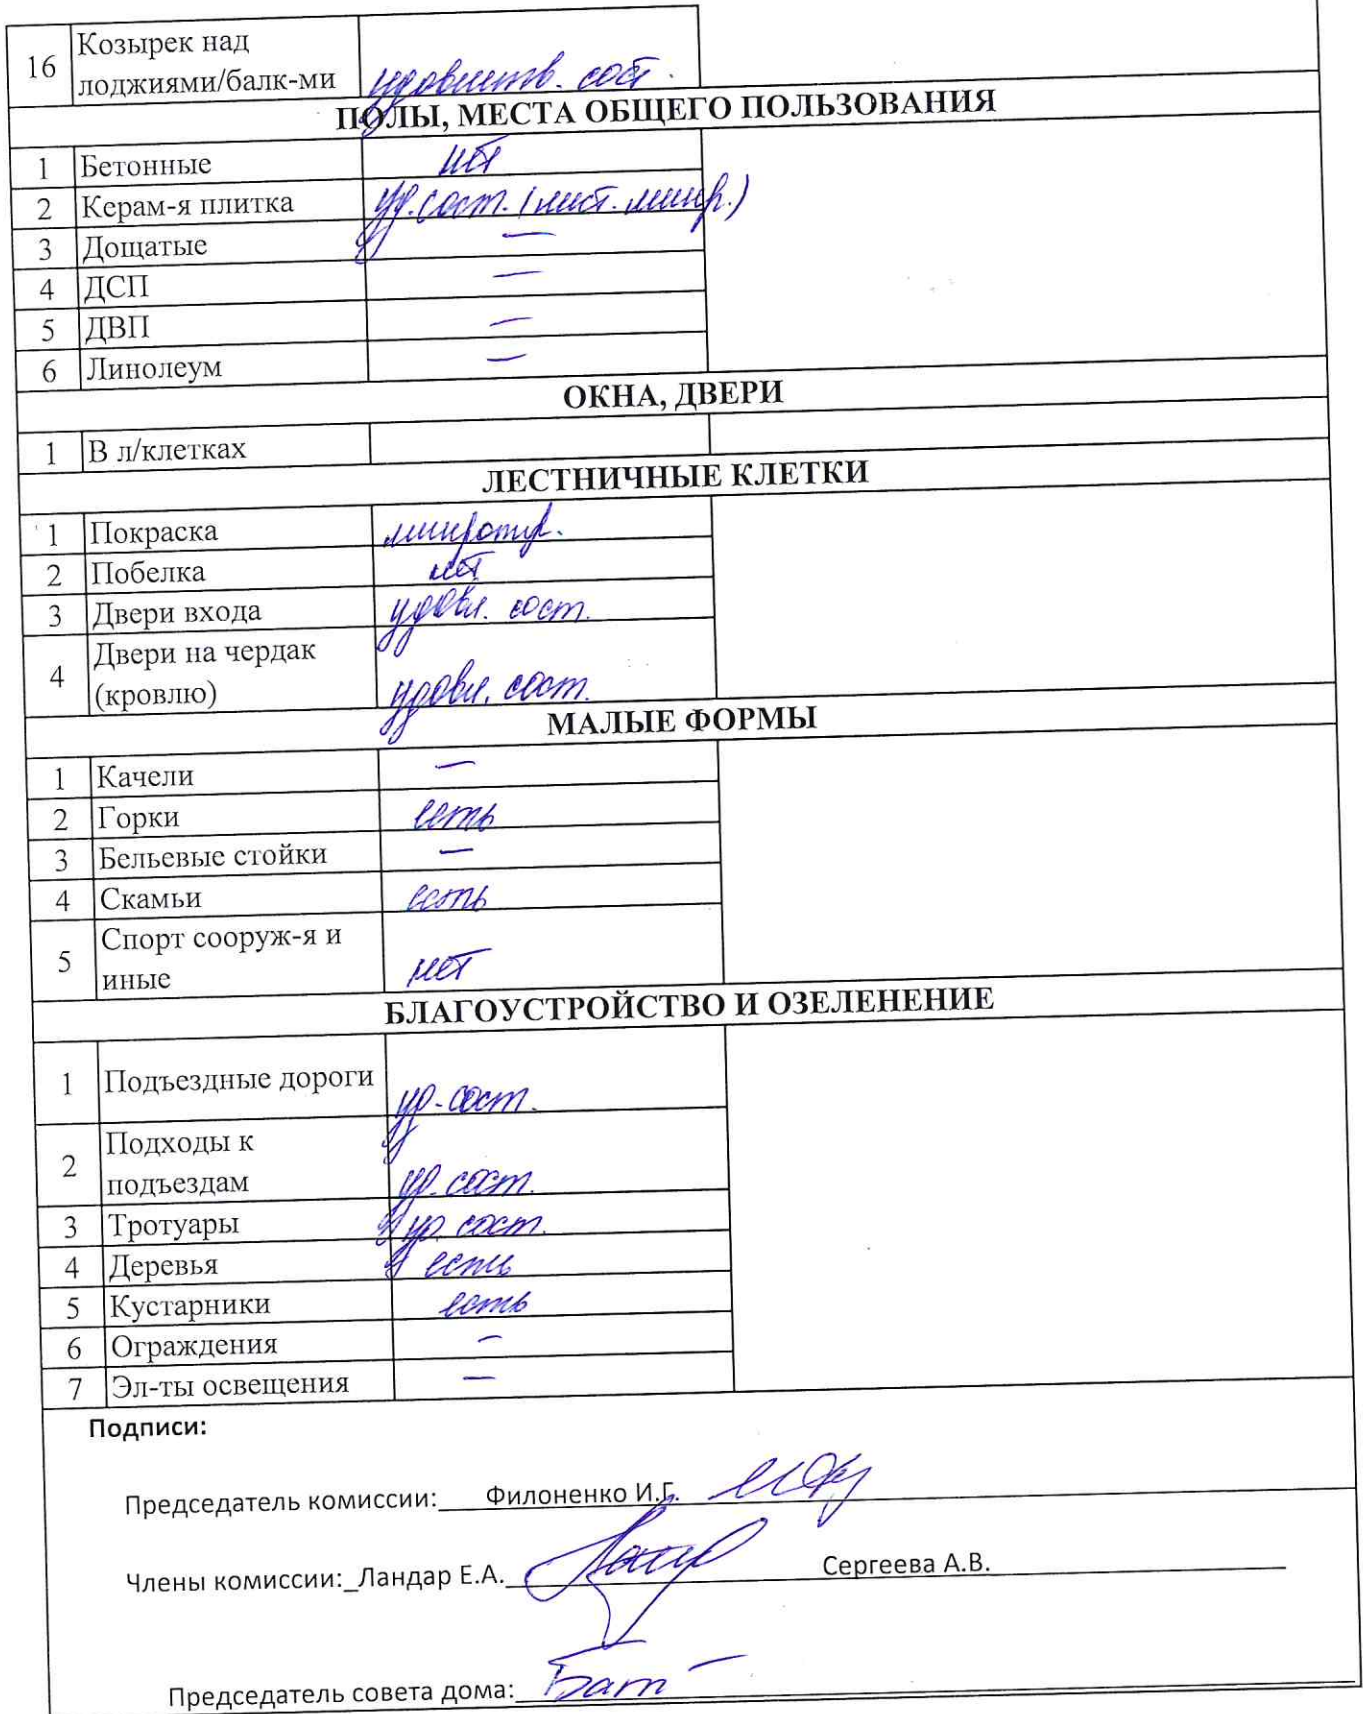 16 Козырек над
лоджиями/балк-ми удовлетв. сост.
ПОЛЫ, МЕСТА ОБЩЕГО ПОЛЬЗОВАНИЯ
1 Бетонные нет
2 Керам-я плитка уд. сост.
3 Дощатые —
4 ДСП —
5 ДВП —
6 Линолеум —
ОКНА, ДВЕРИ
1 В л/клетках
ЛЕСТНИЧНЫЕ КЛЕТКИ
1 Покраска
2 Побелка нет
3 Двери входа удовл. сост.
Двери на чердак
4 (кровлю) удовл. сост.
МАЛЫЕ ФОРМЫ
1 Качели —
2 Горки есть
3 Бельевые стойки —
4 Скамьи есть
Спорт сооруж-я и
5 иные нет
БЛАГОУСТРОЙСТВО И ОЗЕЛЕНЕНИЕ
1 Подъездные дороги уд. сост.
Подходы к
2 подъездам уд. сост.
3 Тротуары уд. сост.
4 Деревья есть
5 Кустарники есть
6 Ограждения —
7 Эл-ты освещения —
Подписи:
Председатель комиссии: Филоненко И.Г.
Члены комиссии: Ландар Е.А. Сергеева А.В.
Председатель совета дома: